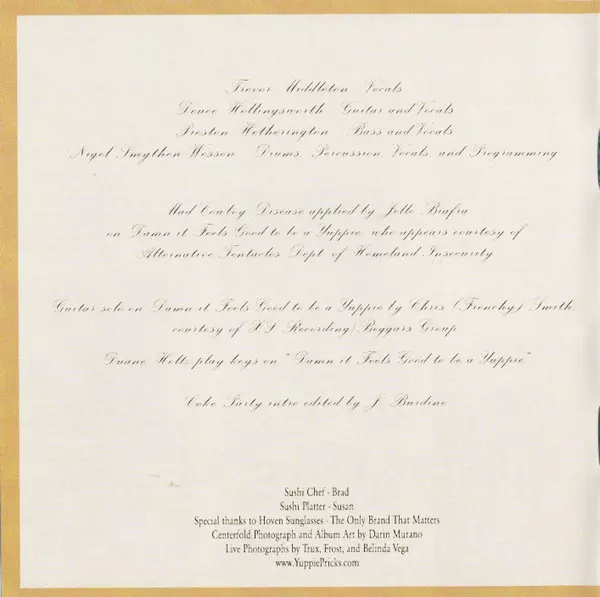 Trevor Middleton Vocals
Deuce Hollingsworth Guitar and Vocals
Preston Hetherington Bass and Vocals
Nigel Smythen-Wesson Drums, Percussion, Vocals, and Programming
Mad Cowboy Disease applied by Jello Biafra
on Damn it Feels Good to be a Yuppie, who appears courtesy of
Alternative Tentacles Dept of Homeland Insecurity
Guitar solo on Damn it Feels Good to be a Yuppie by Chris (Frenchy) Smith,
courtesy of XL Recording/Beggars Group
Duane Holts play keys on "Damn it Feels Good to be a Yuppie"
Coke Party intro edited by J. Burdine
Sushi Chef - Brad
Sushi Platter - Susan
Special thanks to Hoven Sunglasses - The Only Brand That Matters
Centerfold Photograph and Album Art by Darin Murano
Live Photographs by Trux, Frost, and Belinda Vega
www.YuppiePricks.com